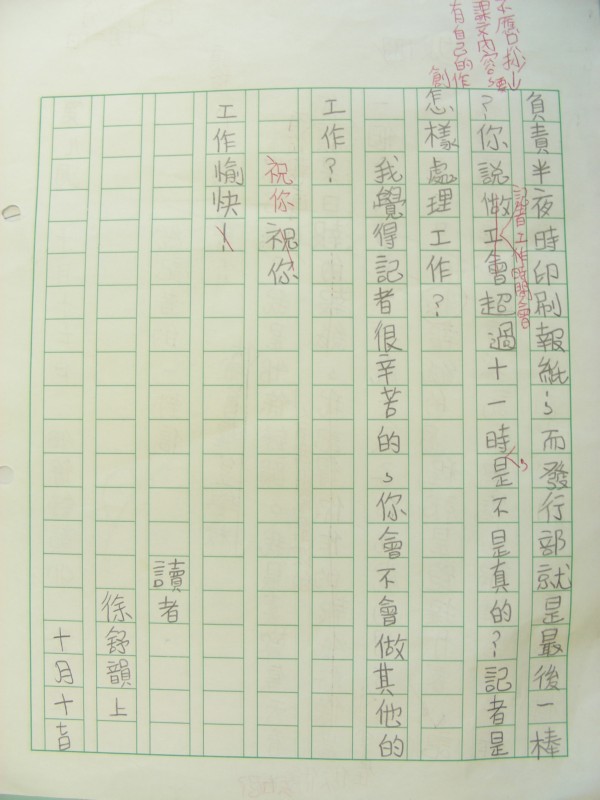 不應只抄
課文內容，要
有自己的作
創
負責半夜時印刷報紙，而發行部就是最後一棒
？你說做工會超過十一時是不是真的？記者是
記者工作時間會
，
怎樣處理工作？
我覺得記者很辛苦的，你會不會做其他的
工作？
祝你祝你
工作愉快！
讀者
徐舒韻上
十月十